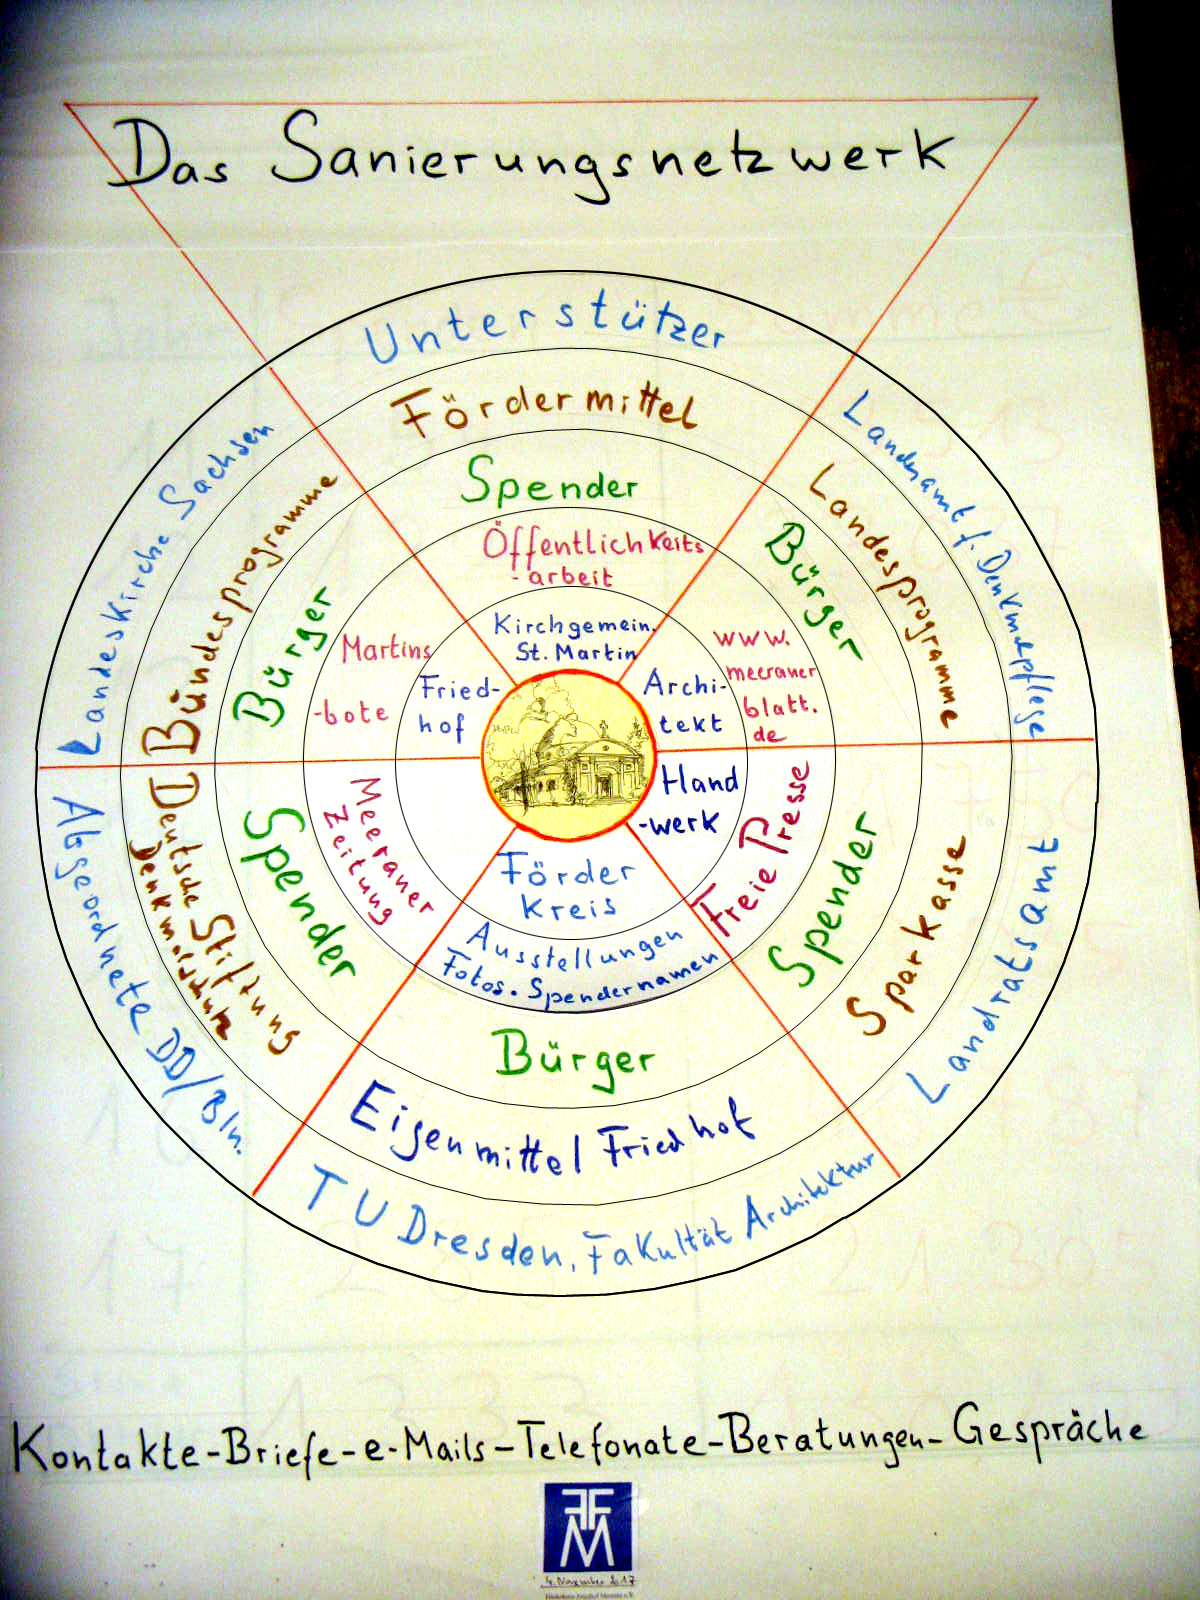 Das Sanierungsnetzwerk
Unterstützer
Fördermittel
Spender
Öffentlichkeits
-arbeit
Kirchgemein.
St. Martin
Landesamt f. Denkmalpflege
Landesprogramme
Bürger
www.
meeraner
blatt.
de
Archi-
tekt
Landratsamt
Sparkasse
Spender
Freie Presse
Hand
-werk
Förder
Kreis
Ausstellungen
Fotos. Spendernamen
Bürger
Eigenmittel Friedhof
TU Dresden, Fakultät Architektur
Abgeordnete DD/Bln.
Deutsche Stiftung
Denkmalschutz
Spender
Meeraner
Zeitung
Landeskirche Sachsen
Bundesprogramme
Bürger
Martins
-bote
Fried-
hof
Kontakte-Briefe-e-Mails-Telefonate-Beratungen-Gespräche
FFM
4. November 2017